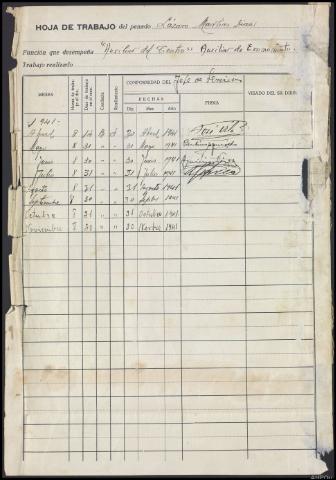 HOJA DE TRABAJO del penado Lázaro Martín
Función que desempeña "Auxiliar del Centro" Auxiliar de
Trabajo realizado
MESES
Horas de trabajo
Días de trabajo
Conducta
Rendimiento
CONFORMIDAD DEL Jefe de Servicios
FECHAS
Día Mes Año
FIRMA
VISADO DEL SR. DIRECTOR
1941
Abril 8 14 B B 30 Abril 1941
Mayo 8 30 " " 30 Mayo 1941
Junio 8 30 " " 30 Junio 1941
Julio 8 31 " " 31 Julio 1941
Agosto 8 31 " " 31 Agosto 1941
Septiembre 8 30 " " 30 Septbre 1941
Octubre 7 31 " " 31 Octubre 1941
Noviembre 7 30 " " 30 Novbre 1941